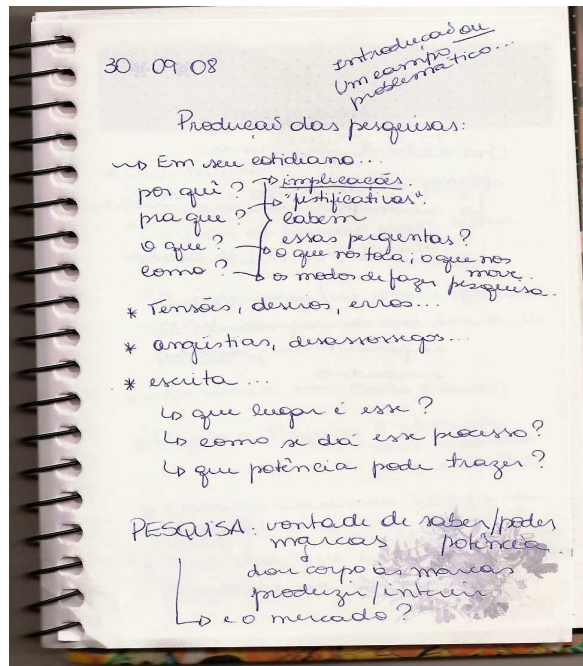 30 09 08
introdução ou
um campo
problemático...
Produção das pesquisas:
Em seu cotidiano...
por quê? implicações.
pra que? "justificativas".
cabem
essas perguntas?
o que? o que nos toca; o que nos
move.
como? os modos de fazer pesquisa.
* Tensões, desvios, erros...
* angústias, desassossegos...
* escrita...
que lugar é esse?
como se dá esse processo?
que potência pode trazer?
PESQUISA: vontade de saber/poder
marcas potência
dar corpo às marcas
produzir/
e o mercado?